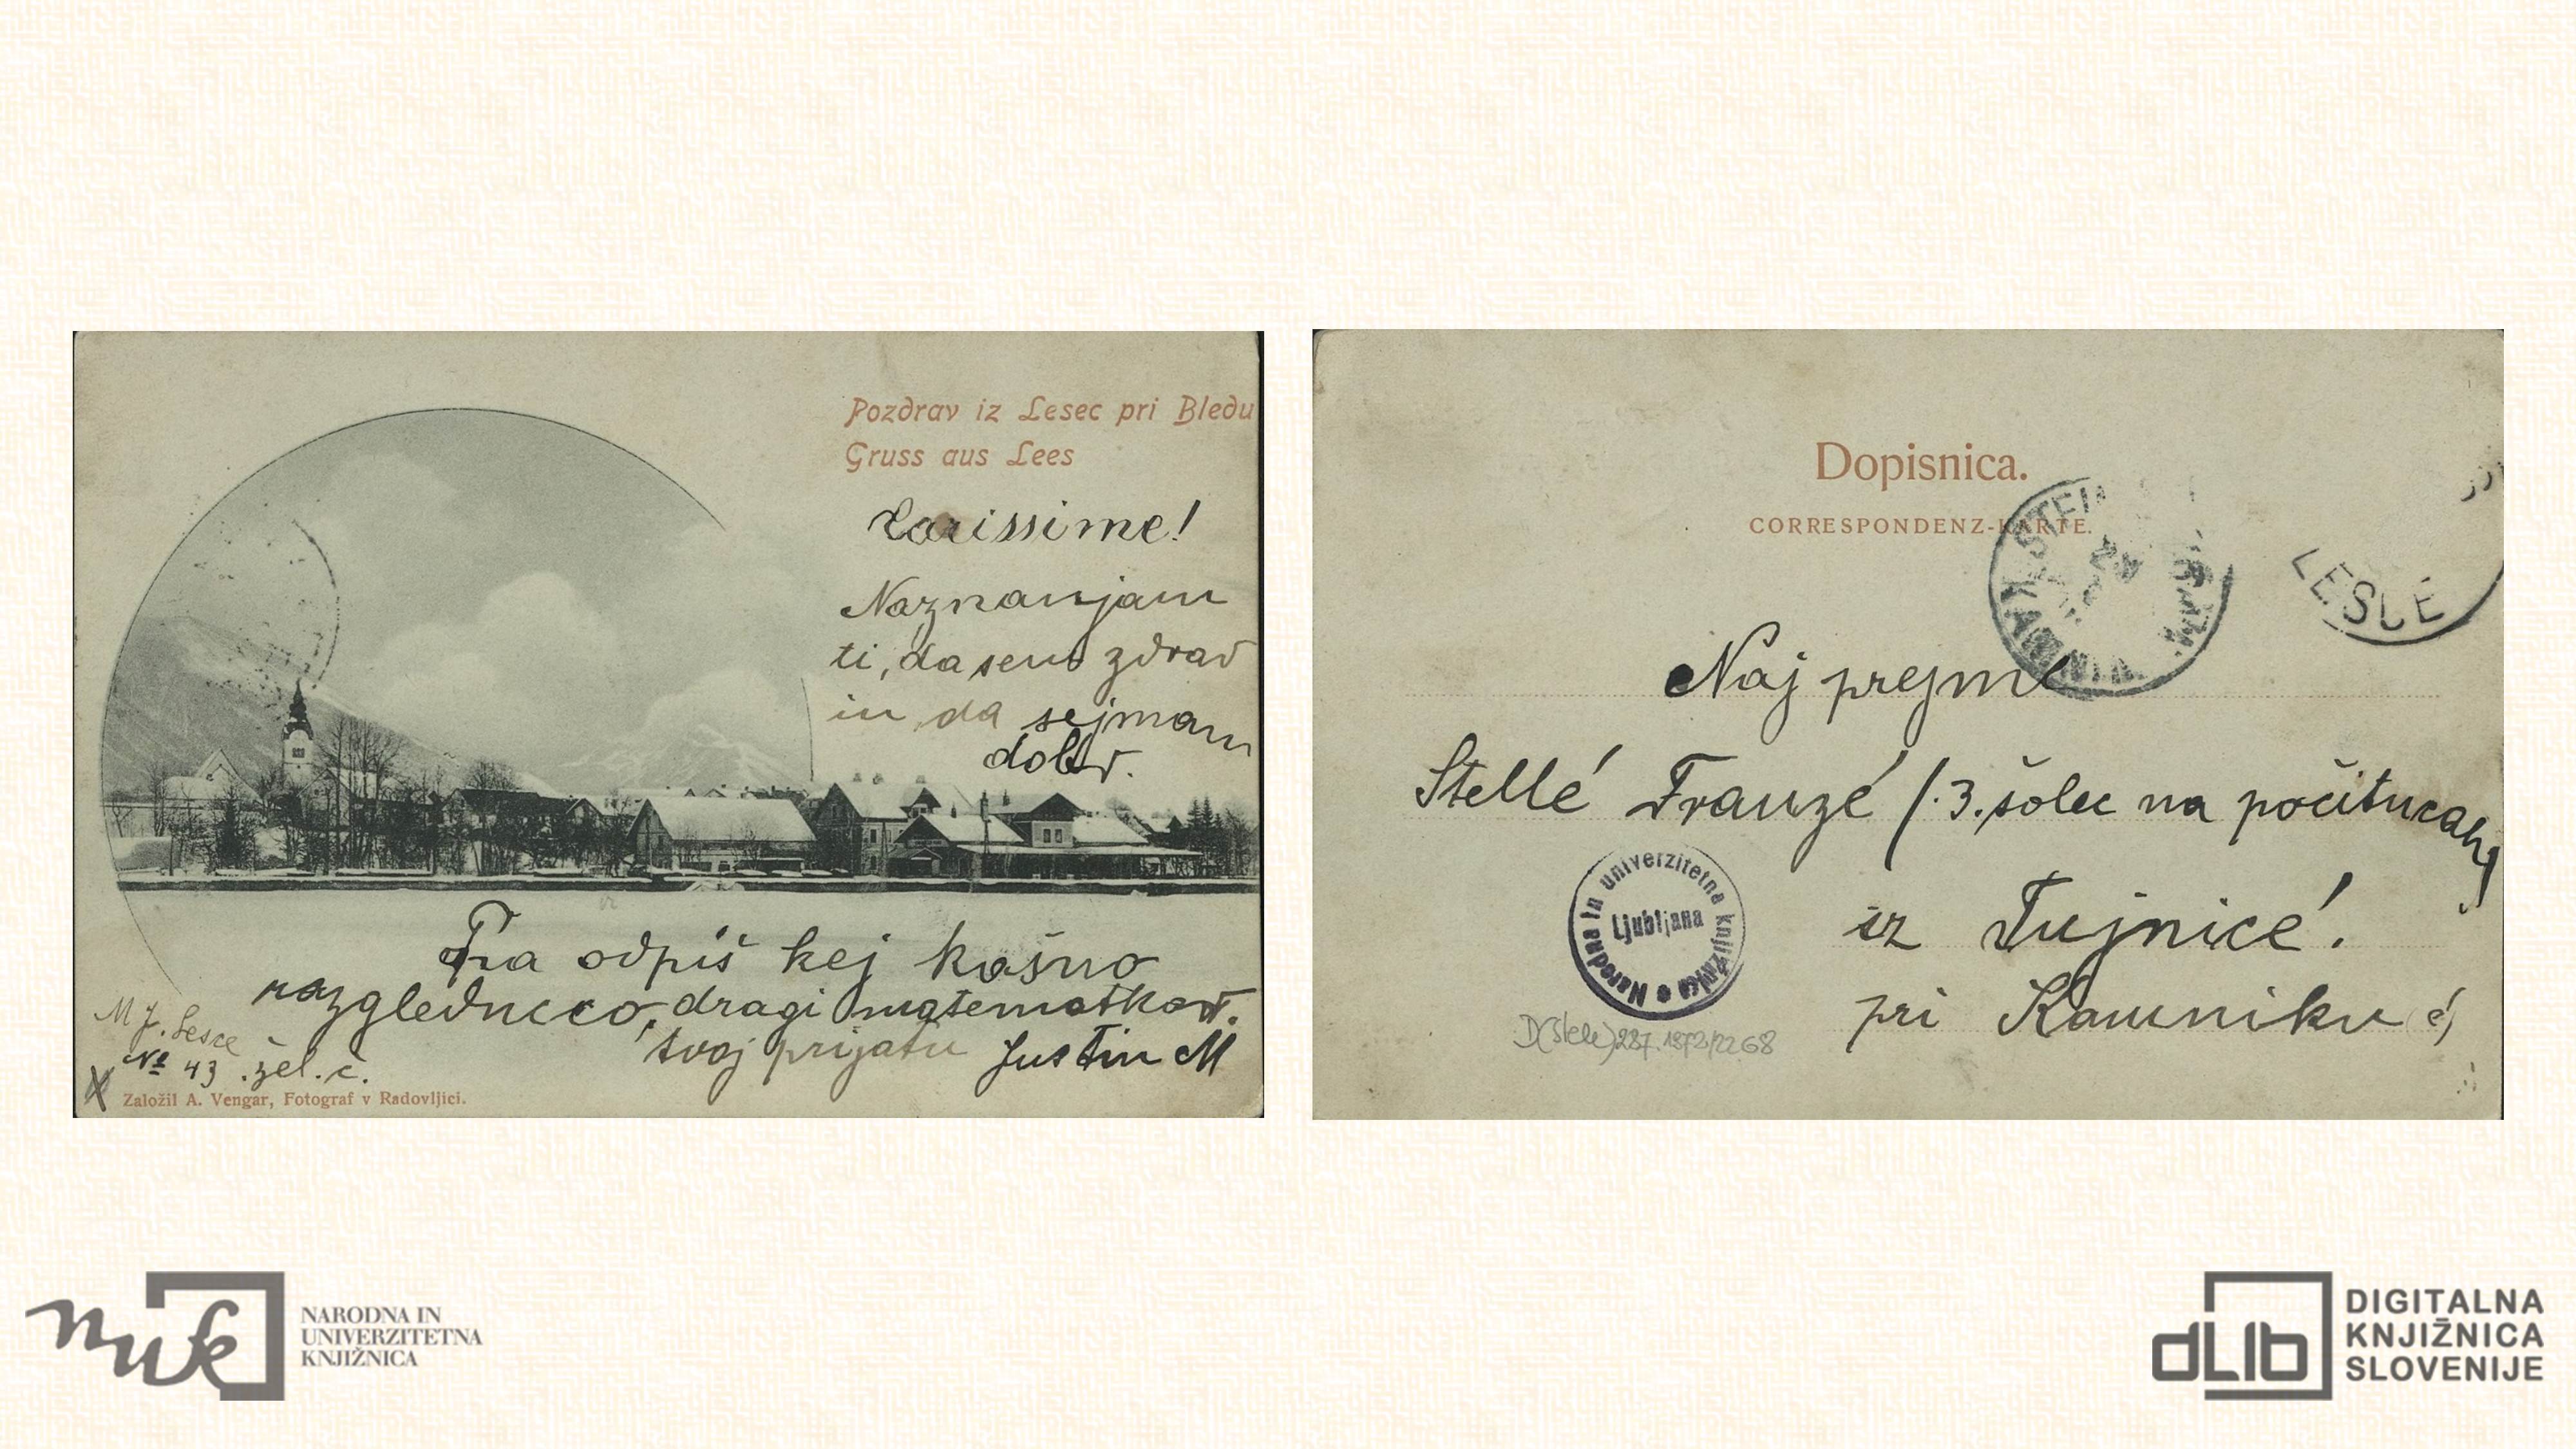 Pozdrav iz Lesec pri Bledu
Gruss aus Lees
Carissime!
Naznanjam
ti, da sem zdrav
in da sejmam
dobr.
Pra odpiš kej kašno
razglednico, dragi matematkar.
tvoj prijatu Justin M
M J. Lesce
№ 43 žel. č.
X
Založil A. Vengar, Fotograf v Radovljici.
Dopisnica.
CORRESPONDENZ-KARTE.
STEIN
LESCE
Naj prejme
Stellé Franzé /.3. šolec na počitncah/
iz Tujnice!
pri Kamniku
Narodna in univerzitetna knjižnica
Ljubljana
D(Stele) 287.1872/2268
nuk
NARODNA IN
UNIVERZITETNA
KNJIŽNICA
dLib
DIGITALNA
KNJIŽNICA
SLOVENIJE